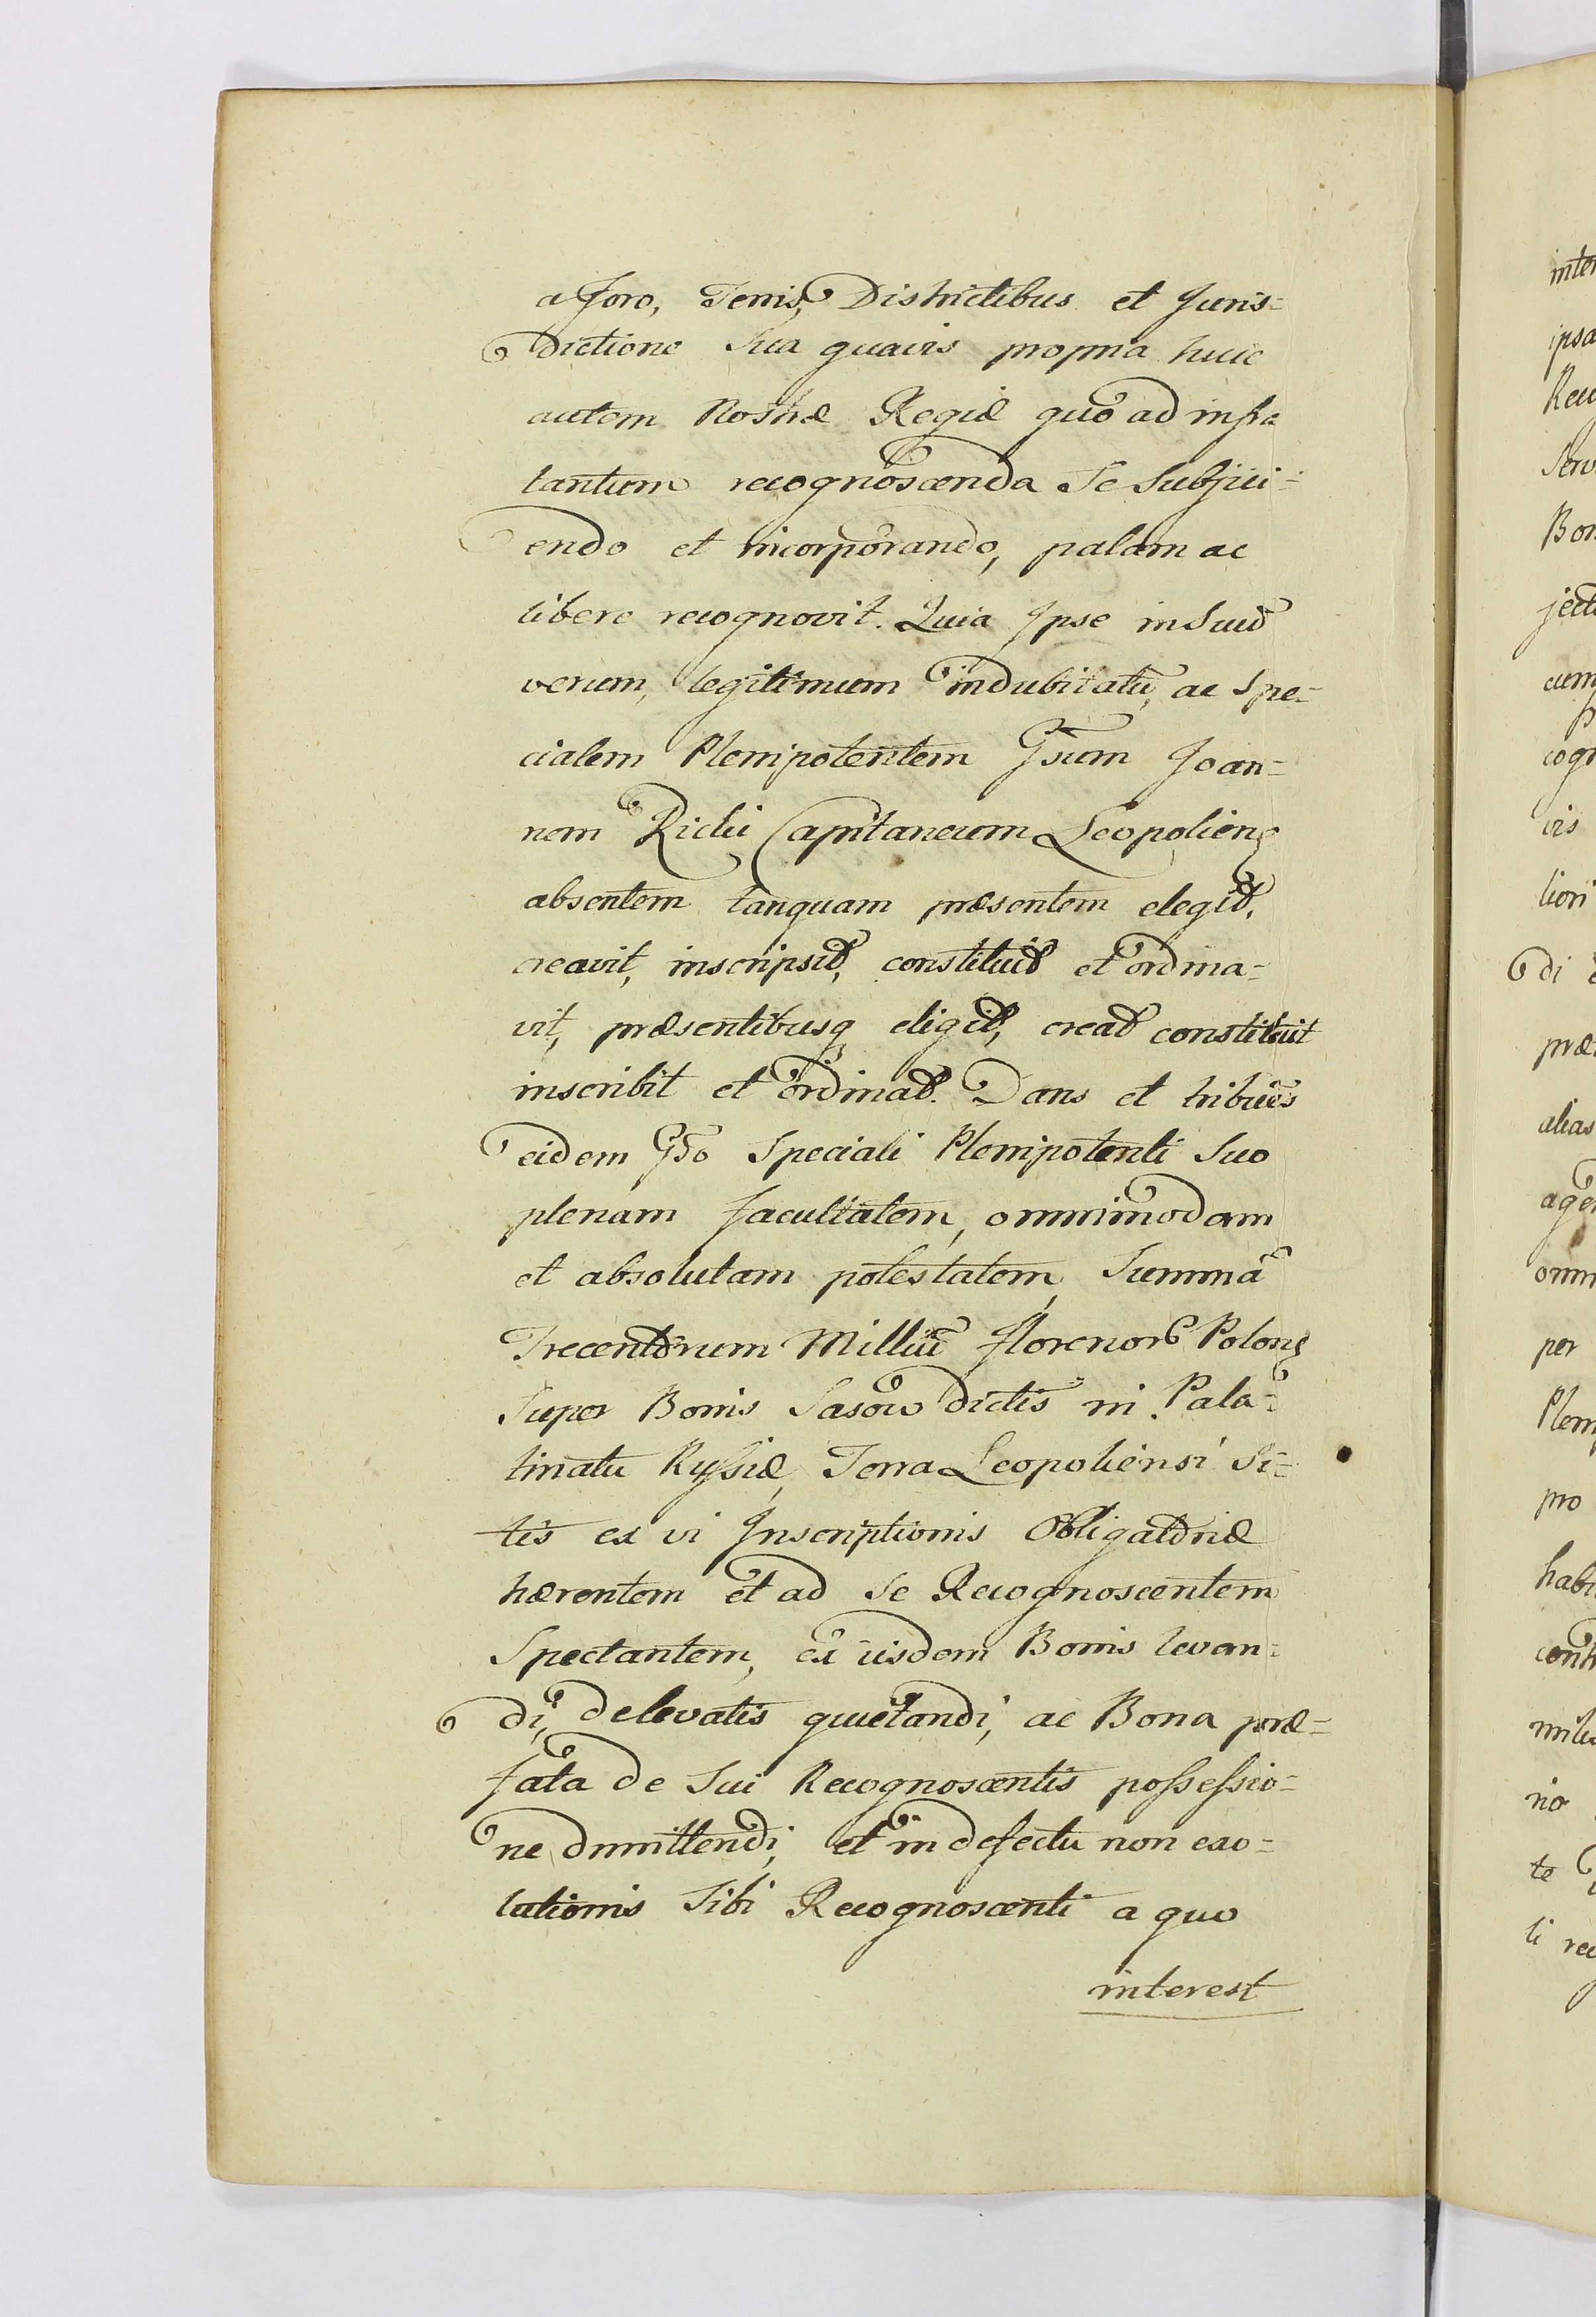 a foro, Terris, Districtibus et Juris=
dictione Sua quavis propria huic
autem Nostræ Regiæ quo ad infra
tantum recognoscenda Se Subjici=
endo et incorporando, palam ac
libere recognovit. Quia Ipse in Suũ
verum, legitimum indubitatũ, ac Spe=
cialem Plenipotentem Gsum Joan=
nem Capitaneum Leopoliens
absentem tanquam præsentem elegit,
creavit, inscripsit, constituit et ordina=
vit, præsentibusq eligit, creat constituit
inscribit et ordinat. Dans et tribuẽs
eidem Gso Speciali Plenipotenti Suo
plenam facultatem, omnimodam
et absolutam potestatem, Summã
Trecentorum Milliũ florenor Polon
Super Bonis Sasow dictis in Pala=
tinatu Russiæ, Terra Leopoliensi Si=
tis ex vi Inscriptionis Obligatoriæ
hærentem et ad Se Recognoscentem
Spectantem, ex iisdem Bonis levan=
di, de levatis quietandi, ac Bona præ=
fata de Sui Recognoscentis possessio=
ne dimittendi, et in defectu non exo=
lutionis Sibi Recognoscenti a quo
interest
inter
ipsa
Reco
Serv
Bon
jecti
cum
cogn
vis
liori
di
præ
alias
agen
omn
per
Plen
pro
hab
cont
mili
rio
te
li rec